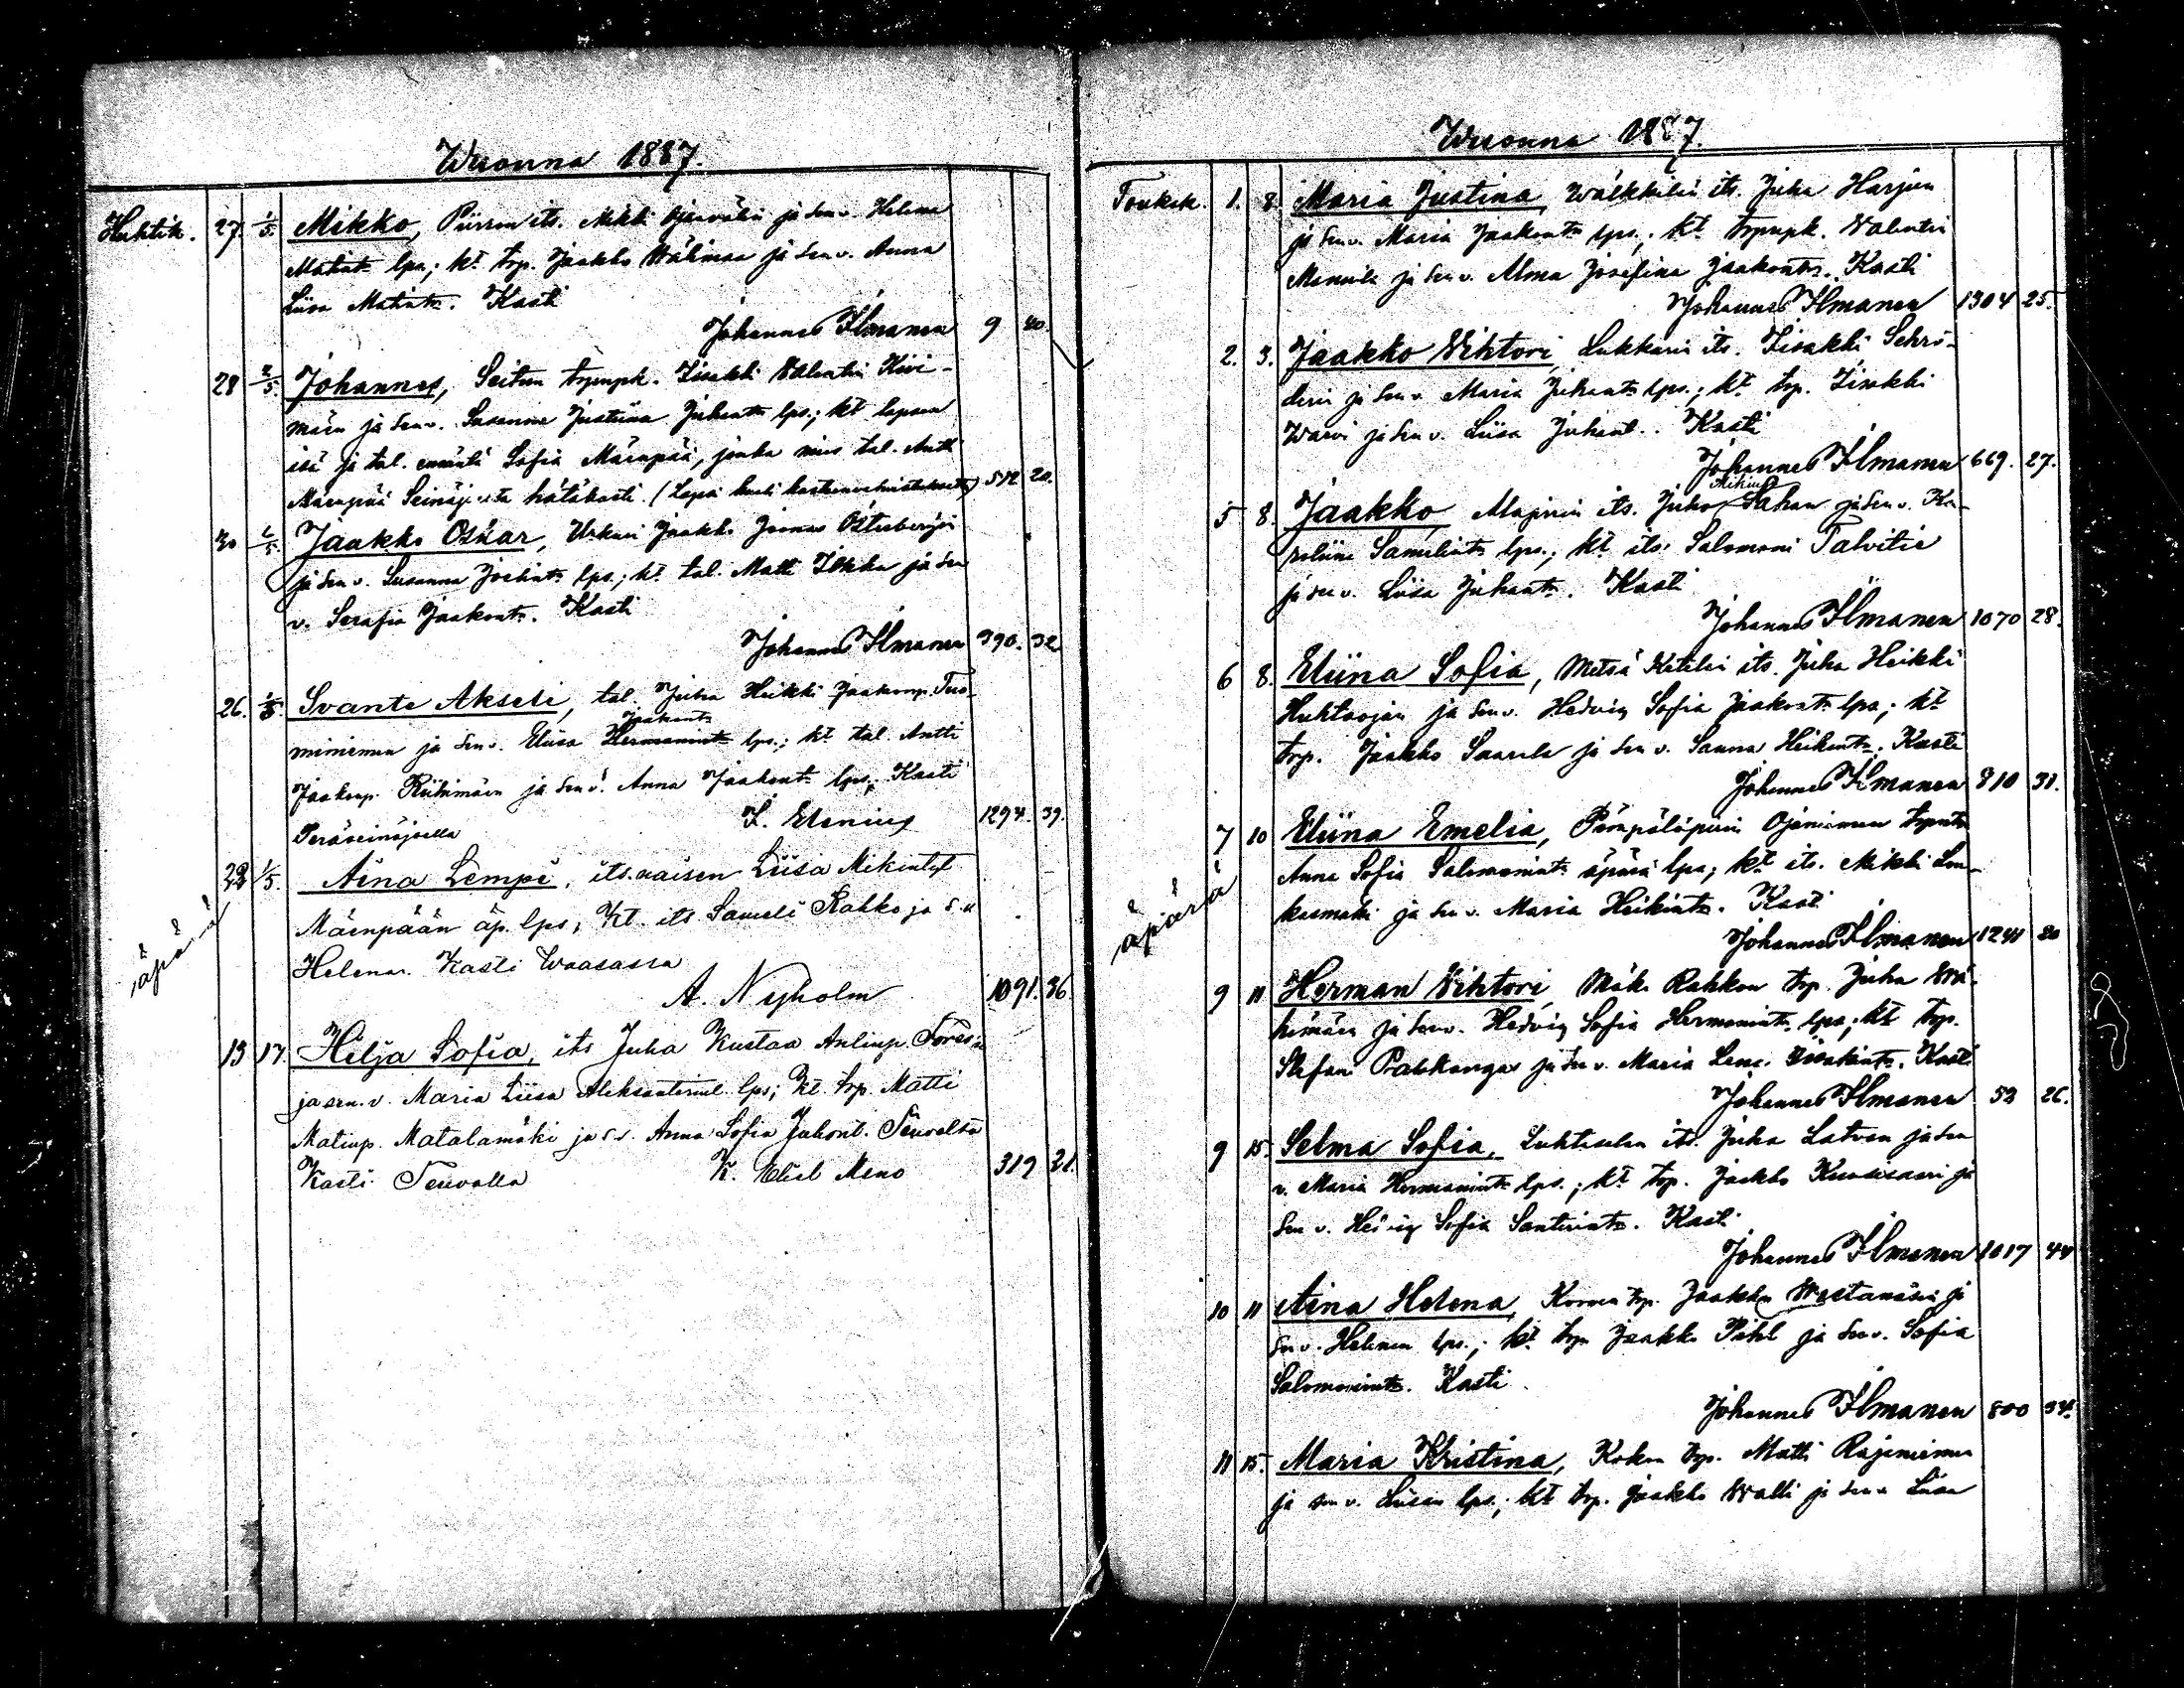 Wuonna 1887.
Huhtik. 27. 1/5. Mikko, Piirron its. Mikki Ojanvälin ja sen v. Helena
Matint. lps; kt. trp. Jaakko Wälimaa ja sen v. Anna
Liisa Matint. Kasti
Johannes Ilmanen 9 40.
28 2/5. Johannes, Seitun trpnpk. Iisakki Walentin Kivi-
mäen ja sen v. Susanna Justiina Juhant. lps.; kt. lapsen
isä ja tal. emäntä Sofia Mäenpää, jonka mies tal. Antti
Mäenpää Seinäj:lta hätäkasti. (Lapsi kuoli 512 20.
30 6/5. Jaakko Oskar, Urkuri Jaakko Joonas Österbergin
ja sen v. Susanna lps.; kt. tal. Matti Ilkka ja sen
v. Serafia Jaakont. Kasti
Johannes Ilmanen 390. 32
26. 1/5. Svante Akseli, tal. Juha Heikki Jaakonp. Tuo-
Jaakont.
miniemen ja sen v. Eliisa Hermanint. lps.; kt. tal. Antti
Jaakonp. Riihimäen ja sen v. Anna Jaakont. lps. Kasti
Peräseinäjoella K. Elenius 1294. 39.
äpärä 29 1/5. Aina Lempi, its.naisen Liisa Mikint.
Mäenpään äp. lps, Kt. its. Sameli Rahko ja s. v.
Helena. Kasti Waasassa
A. Nyholm 1091. 36
13 17. Hilja Sofia, its Juha Kustaa Antinp.
ja sen. v. Maria Liisa Aleksanterint. lps; Kt. trp. Matti
Matinp. Matalamäki ja s.v. Anna Sofia Juhont. Teuvalta
Kasti Teuvalla K. Eliel Meno 319 21.
Wuonna 1887.
Toukok. 1. 8. Maria Justina, Wälkkilän its. Juha Harjun
ja sen v. Maria Jaakont. lps.; kt. trpnpk. Walentin
Mannila ja sen v. Alma Josefina Jaakont. Kasti
Johannes Ilmanen 1304 25.
2. 3. Jaakko Wihtori, Lukkarin its. Iisakki Schrö-
derin ja sen v. Maria Juhant. lps.; kt. trp. Iisakki
Warvi ja sen v. Liisa Juhant. Kasti
Johannes Ilmanen 669. 27.
5 8. Jaakko, Majurin its. Juho Sahan ja sen v. Ka-
roliina Samelint. lps.; kt. its. Salomoni Talvitie
ja sen v. Liisa Juhant. Kasti
Johannes Ilmanen 1070 28.
6 8. Eliina Sofia, Metsä Ketolan its. Juha Heikki
Huhtaojan ja sen v. Hedvig Sofia Jaakont. lps; kt.
trp. Jaakko Saarela ja sen v. Sanna Heikint. Kasti
Johannes Ilmanen 810 31.
äpärä 7 10 Eliina Emelia, Ojaniemen
Anna Sofia Salomonint. äpärä lps; kt. its. Mikki Lou-
kasmäki ja sen v. Maria Heikint. Kasti
Johannes Ilmanen 1241 20
9 11 Herman Wihtori, Mäki Rahkon trp. Juha Wä-
himäen ja sen v. Hedvig Sofia Hermanint. lps; kt. trp.
Stefan Pakkangas ja sen v. Maria Lena Iisakint. Kasti
Johannes Ilmanen 53 26.
9 15. Selma Sofia, Luhtaulan its. Juha Latvan ja sen
v. Maria Hermanint. lps.; kt. trp. Jaakko ja
sen v. Hedvig Sofia Santerint. Kasti
Johannes Ilmanen 1017 44
10 11 Aina Helena, trp. Jaakko Westamäen ja
sen v. Helenan lps.; kt. trp. Jaakko Pihl ja sen v. Sofia
Salomonint. Kasti
Johannes Ilmanen 800 34.
11 15. Maria Kristina, trp. Matti Rajaniemen
ja sen v. Liisan lps.; kt. trp. Jaakko Walli ja sen v. Liisa